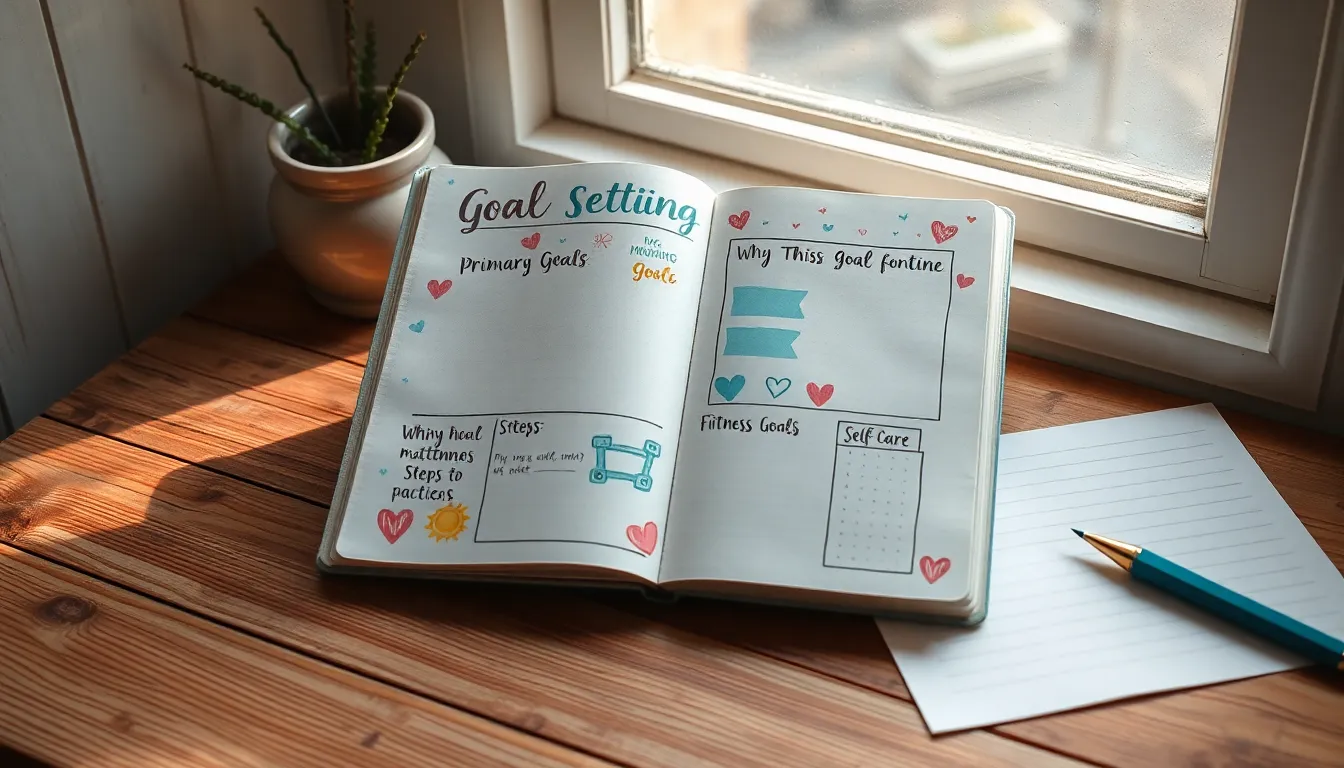 Goal Settiing
Primary Goals
Goals
Whiny heal
mattinns
Steps to
pactiens
Steps:
Why This goal fontine
Fitness Goals
Self Care